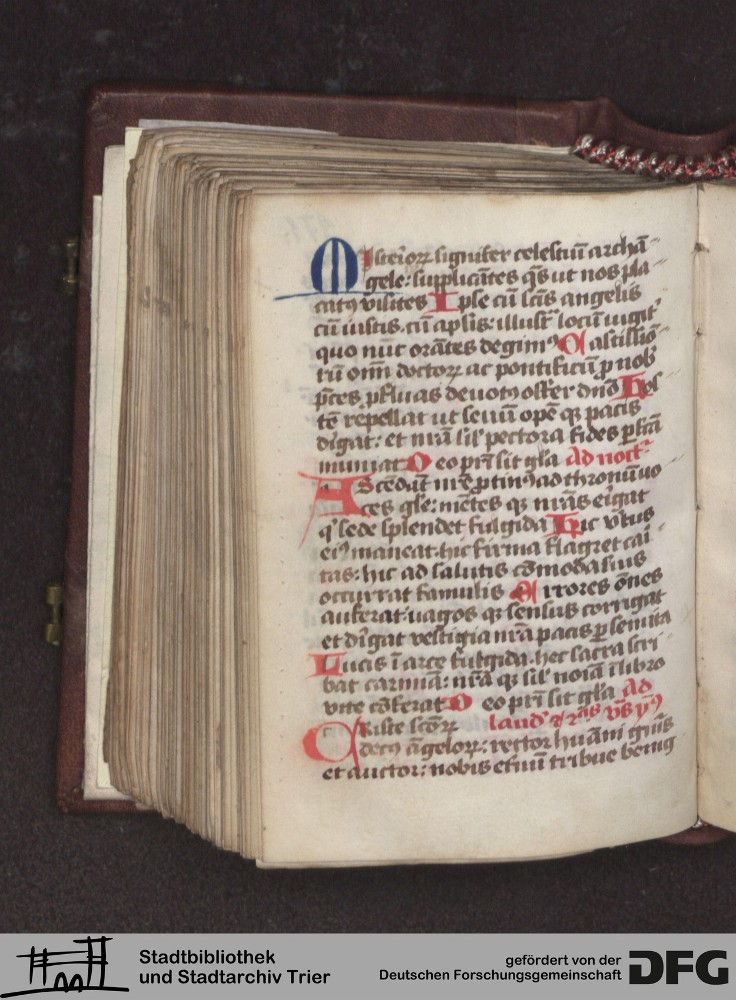 Misteriorꝝ signifer celestiū archā-
gele: supplicātes q̄s ut nos pla-
catꝰ visites Ipse cū sc̄is angelis
cū iustis. cū apl̄is: illustͬ locū iugit̾
quo nūc orātes degimꝰ Castissio-
rū om̄ doctorꝝ ac pontificū ꝓ nob̾
p̄ces ꝑfluas deuotꝰ offer dn̄o Hos
tē repellat ut seuū opē qꝫ pacis
dīgat: et nr̄a sil̾ pectora fides ꝑfc̄a
muniat Deo pr̄i sit gl̄a Ad noct̾
Ascēdāt nr̄e ꝓtinꝰ ad thronū uo
ces gl̄e: mētes qꝫ nr̄as eīgāt
q̾ sede splendet fulgida Hic v̾tus
eiꝰ maneat. hic firma flagret cai-
tas: hic ad salutis cōmoda suis
occurrat famulis Errores ōnes
auferat. uagos qꝫ sensus corrigat
et dīgat vestigia nr̄a pacis ꝑ semita
Lucis ī arce fulgida. hec sacra scri-
bat carmīa: nr̄a qꝫ sil̾ noīa ī libro
vite cōferat Deo pr̄i sit gl̄a Ad
Criste sc̄orꝝ laud̾
decꝰ āgelorꝝ: rector huāni gn̄is
et auctor: nobis et̾nū tribue benig
Stadtbibliothek
und Stadtarchiv Trier
gefördert von der
Deutschen Forschungsgemeinschaft
DFG